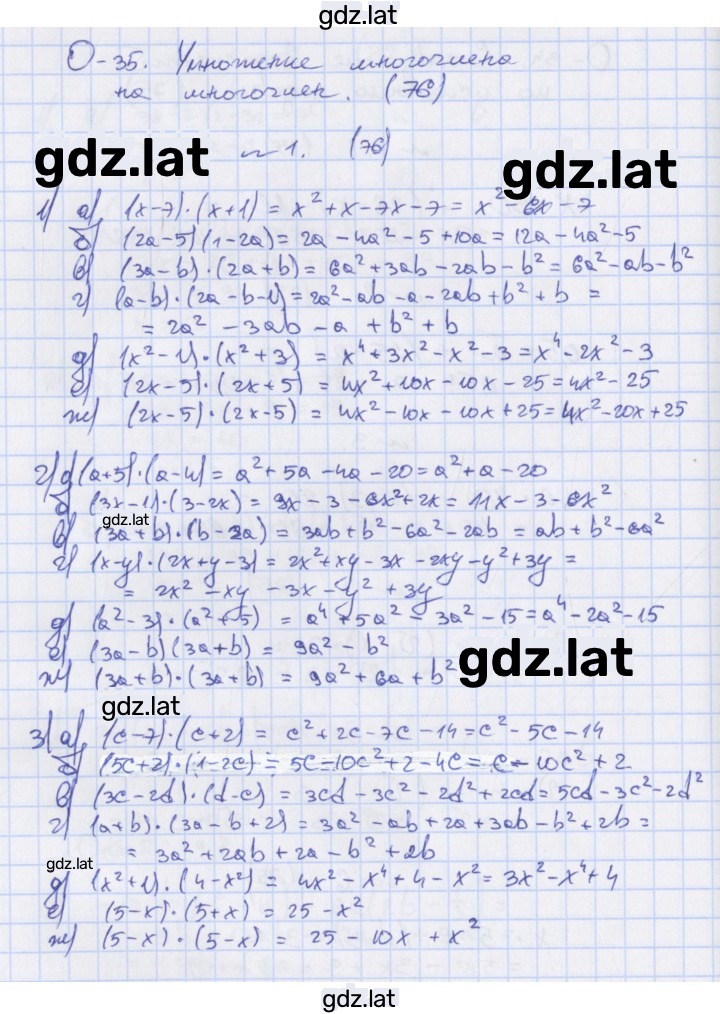 gdz.lat
О-35. Умножение многочлена
на многочлен. (76)
gdz.lat № 1. (76) gdz.lat
1) а) (x-7)·(x+1) = x²+x-7x-7 = x²-6x-7
б) (2a-5)(1-2a) = 2a-4a²-5+10a = 12a-4a²-5
в) (3a-b)·(2a+b) = 6a²+3ab-2ab-b² = 6a²-ab-b²
г) (a-b)·(2a-b-1) = 2a²-ab-a-2ab+b²+b =
= 2a²-3ab-a+b²+b
д) (x²-1)·(x²+3) = x⁴+3x²-x²-3 = x⁴-2x²-3
е) (2x-5)·(2x+5) = 4x²+10x-10x-25 = 4x²-25
ж) (2x-5)·(2x-5) = 4x²-10x-10x+25 = 4x²-20x+25
2) а) (a+5)·(a-4) = a²+5a-4a-20 = a²+a-20
б) (3x-1)·(3-2x) = 9x-3-6x²+2x = 11x-3-6x²
в) (3a+b)·(b-2a) = 3ab+b²-6a²-2ab = ab+b²-6a²
г) (x-y)·(2x+y-3) = 2x²+xy-3x-2xy-y²+3y =
= 2x²-xy-3x-y²+3y
д) (a²-3)·(a²+5) = a⁴+5a²-3a²-15 = a⁴-2a²-15
е) (3a-b)(3a+b) = 9a²-b²
ж) (3a+b)·(3a+b) = 9a²+6a+b² gdz.lat
gdz.lat
3) а) (c-7)·(c+2) = c²+2c-7c-14 = c²-5c-14
б) (5c+2)·(1-2c) = 5c-10c²+2-4c = c-10c²+2
в) (3c-2d)·(d-c) = 3cd-3c²-2d²+2cd = 5cd-3c²-2d²
г) (a+b)·(3a-b+2) = 3a²-ab+2a+3ab-b²+2b =
= 3a²+2ab+2a-b²+2b
gdz.lat
д) (x²+1)·(4-x²) = 4x²-x⁴+4-x² = 3x²-x⁴+4
е) (5-x)·(5+x) = 25-x²
ж) (5-x)·(5-x) = 25-10x+x²
gdz.lat